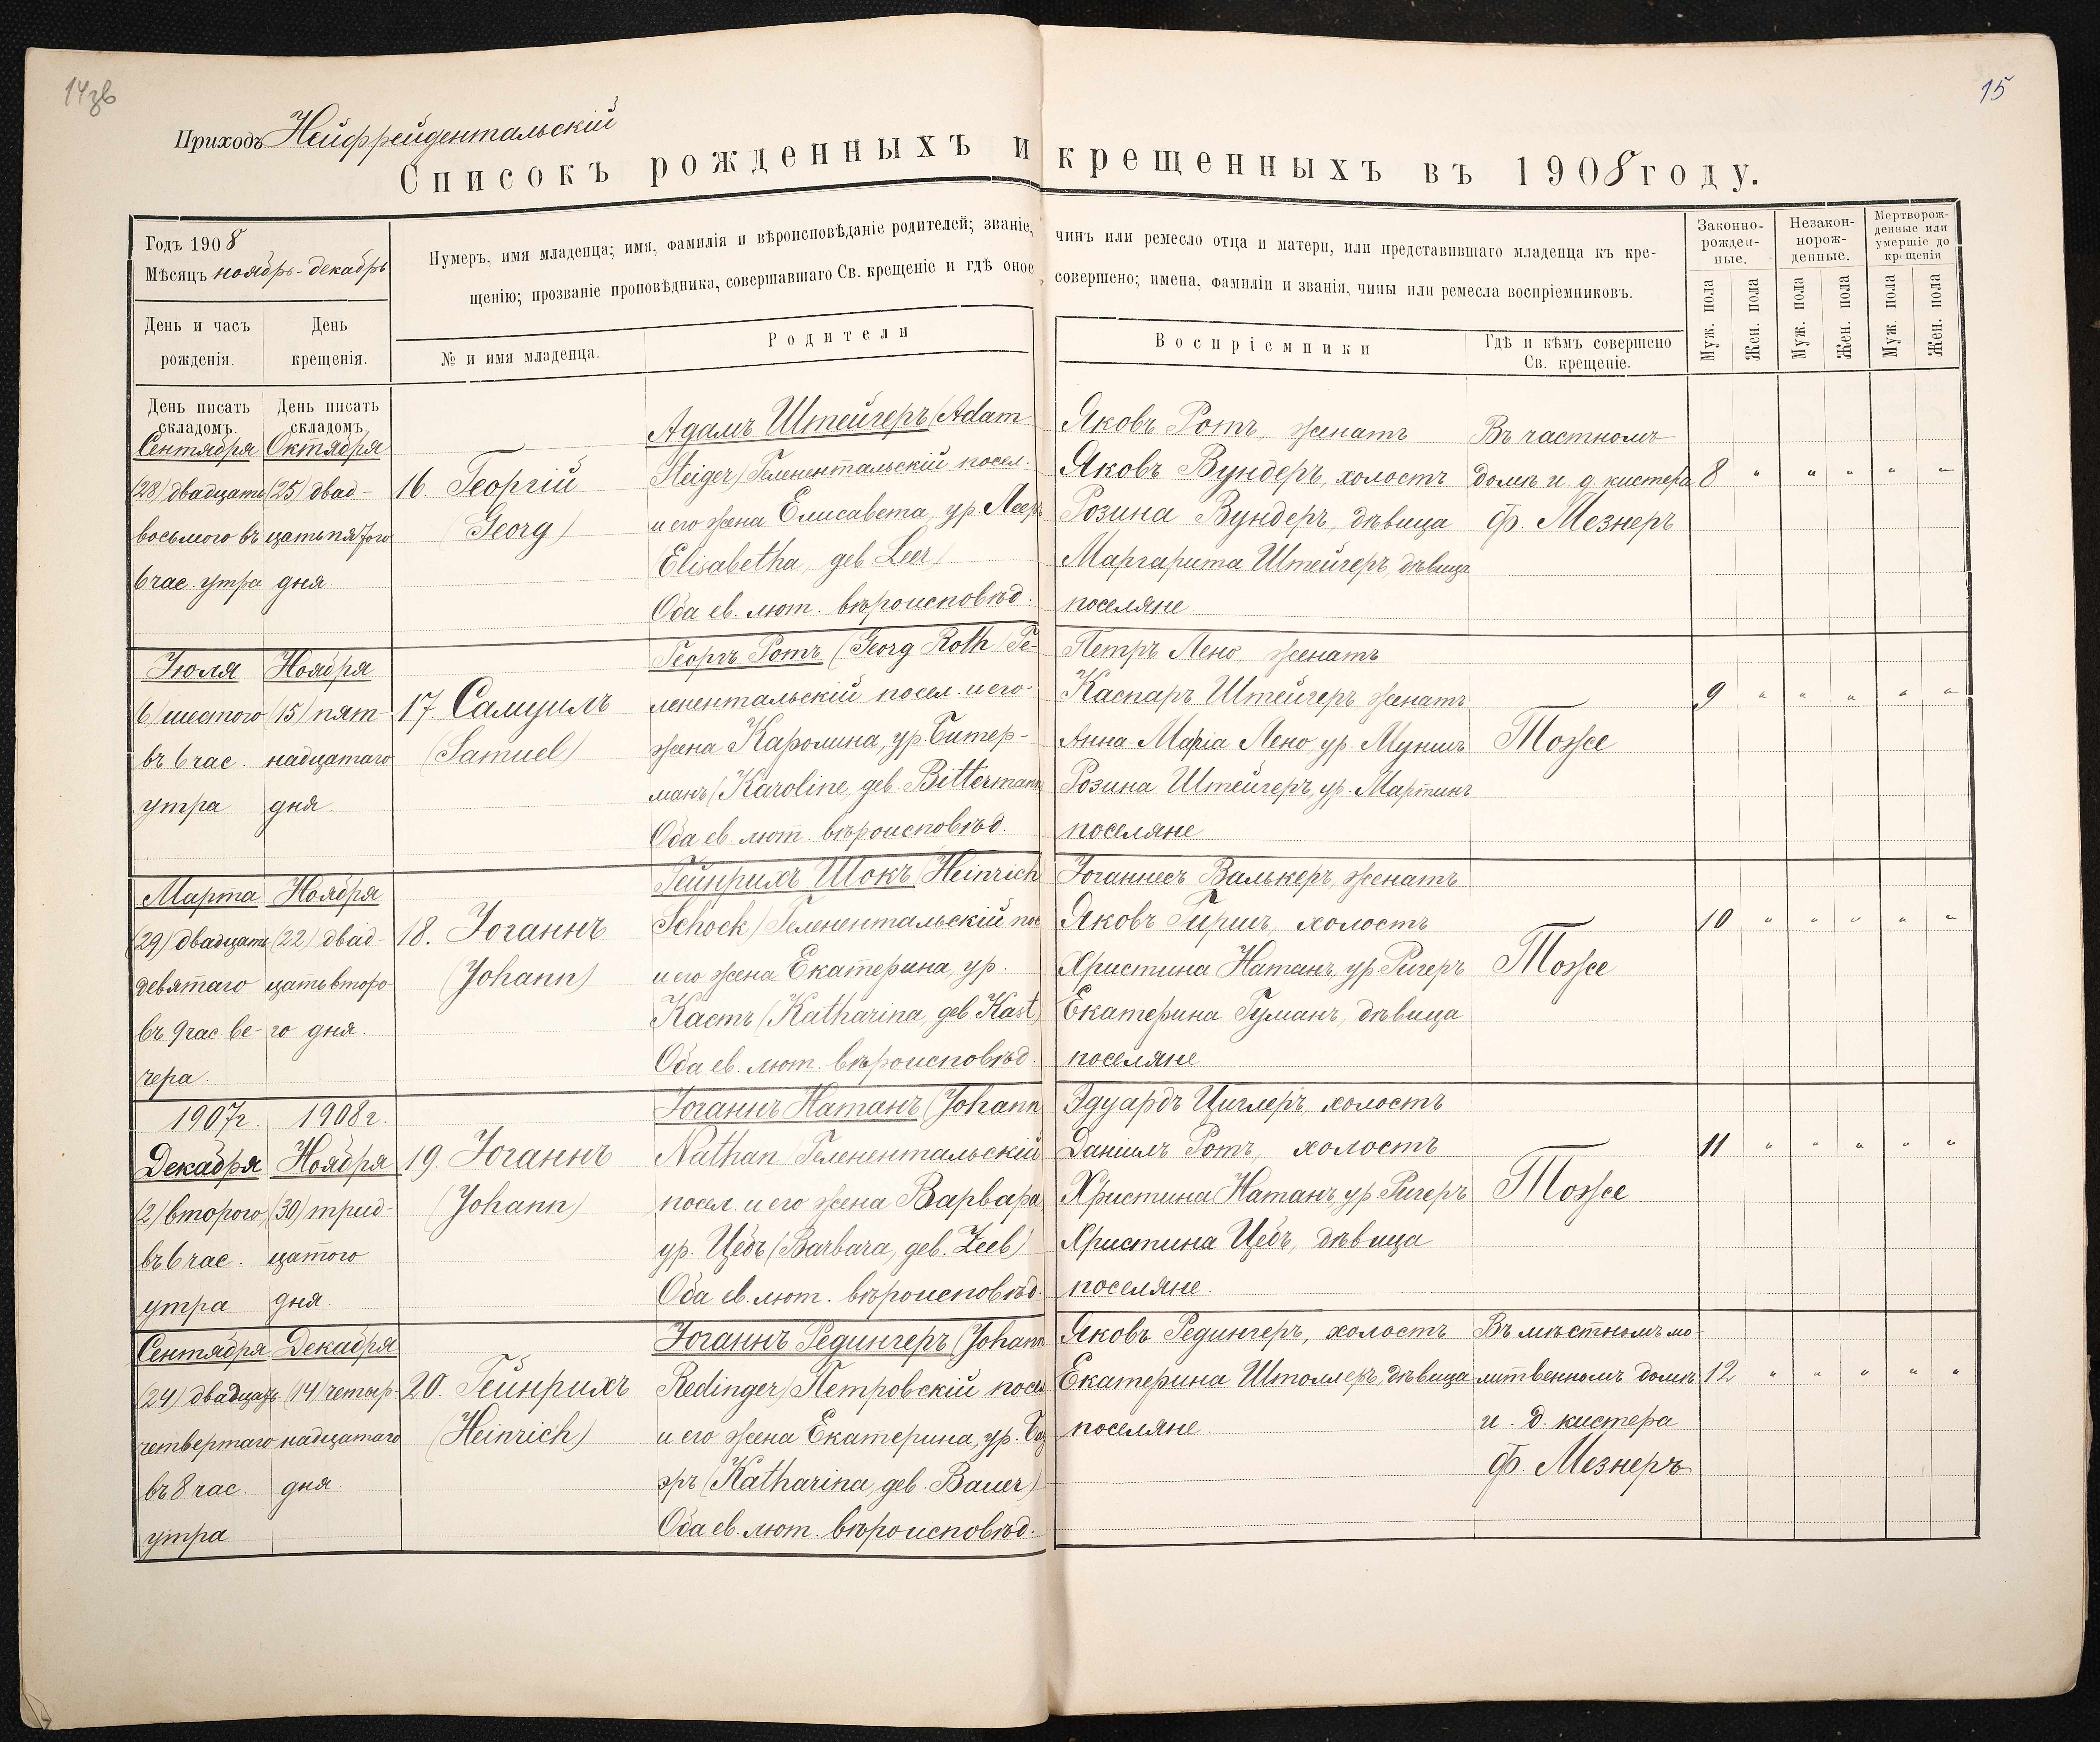 14зв
15
Приходъ Нейфрейдентальскій
Списокъ рожденныхъ и крещенныхъ въ 1908 году.
Годъ 1908
Мѣсяцъ ноябрь-декабрь
День и часъ рожденія.
День крещенія.
Нумеръ, имя младенца; имя, фамилія и вѣроисповѣданіе родителей; званіе, чинъ или ремесло отца и матери, или представившаго младенца къ кре-
щенію; прозваніе проповѣдника, совершавшаго Св. крещеніе и гдѣ оное совершено; имена, фамиліи и званія, чины или ремесла воспріемниковъ.
№ и имя младенца.
Родители
Воспріемники
Гдѣ и кѣмъ совершено
Св. крещеніе.
Законно-
рожден-
ные.
Незакон-
норож-
денные.
Мертворож-
денные или
умершіе до
крещенія
Муж. пола
Жен. пола
Муж. пола
Жен. пола
Муж. пола
Жен. пола
День писать
складомъ.
День писать
складомъ.
Сентября
(28) двадцать
восьмого въ
6 час. утра
Октября
(25) двад-
цать пятого
дня
16. Георгій
(Georg)
Адамъ Штейгеръ (Adam
Steiger) Геленентальскій посел.
и его жена Елисавета, ур. Лееръ
Elisabetha, geb. Leer)
Оба ев. лют. вѣроисповѣд.
Яковъ Ротъ, женатъ
Яковъ Вундеръ, холостъ
Розина Вундеръ, дѣвица
Маргарита Штейгеръ, дѣвица
поселяне
Въ частномъ
домѣ и. д. кистера
Ф. Мезнеръ
8 " " " " "
Іюля
(6) шестого
въ 6 час.
утра
Ноября
(15) пят-
надцатаго
дня.
17. Самуилъ
(Samuel)
Георгъ Ротъ (Georg Roth) Ге-
ленентальскій посел. и его
жена Каролина, ур. Битер-
манъ (Karoline, geb. Bittermann)
Оба ев. лют. вѣроисповѣд.
Петръ Лено, женатъ
Каспаръ Штейгеръ женатъ
Анна Марія Лено, ур. Муншъ
Розина Штейгеръ, ур. Мартинъ
поселяне
Тоже
9 " " " " "
Марта
(29) двадцать
девятаго
въ 9 час. ве-
чера.
Ноября
(22) двад-
цать второ-
го дня.
18. Іоганнъ
(Johann)
Гейнрихъ Шокъ (Heinrich
Schock) Геленентальскій пос
и его жена Екатерина, ур.
Кастъ (Katharina, geb. Kast)
Оба ев. лют. вѣроисповѣд.
Іоганнесъ Валькеръ, женатъ
Яковъ Гиршъ, холостъ
Христина Натанъ, ур. Ригеръ
Екатерина Гуманъ, дѣвица
поселяне
Тоже
10 " " " " "
1907 г.
Декабря
(2) второго
въ 6 час.
утра
1908 г.
Ноября
(30) трид-
цатого
дня.
19. Іоганнъ
(Johann)
Іоганнъ Натанъ (Johann
Nathan) Геленентальскій
посел. и его жена Варвара
ур. Цебъ (Barbara, geb. Zeeb)
Оба ев. лют. вѣроисповѣд.
Эдуардъ Циглеръ, холостъ
Даніилъ Ротъ, холостъ
Христина Натанъ, ур. Ригеръ
Христина Цебъ, дѣвица
поселяне.
Тоже
11 " " " " "
Сентября
(24) двадцать
четвертаго
въ 8 час.
утра
Декабря
(14) четыр-
надцатаго
дня.
20. Гейнрихъ
(Heinrich)
Іоганнъ Редингеръ (Johann
Redinger) Петровскій посел
и его жена Екатерина, ур. Бау
эръ (Katharina, geb. Bauer)
Оба ев. лют. вѣроисповѣд.
Яковъ Редингеръ, холостъ
Екатерина Штоллеръ, дѣвица
поселяне.
Въ мѣстномъ мо-
литвенномъ домѣ
и. д. кистера
Ф. Мезнеръ
12 " " " " "